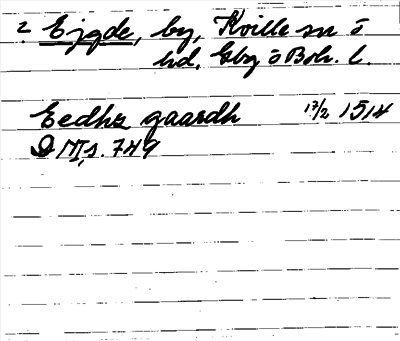 2. Ejgde, by, Kville sn o
hd, Gby o Boh. l.
Eedhz gaardh 17/2 1514
DN II, s. 749